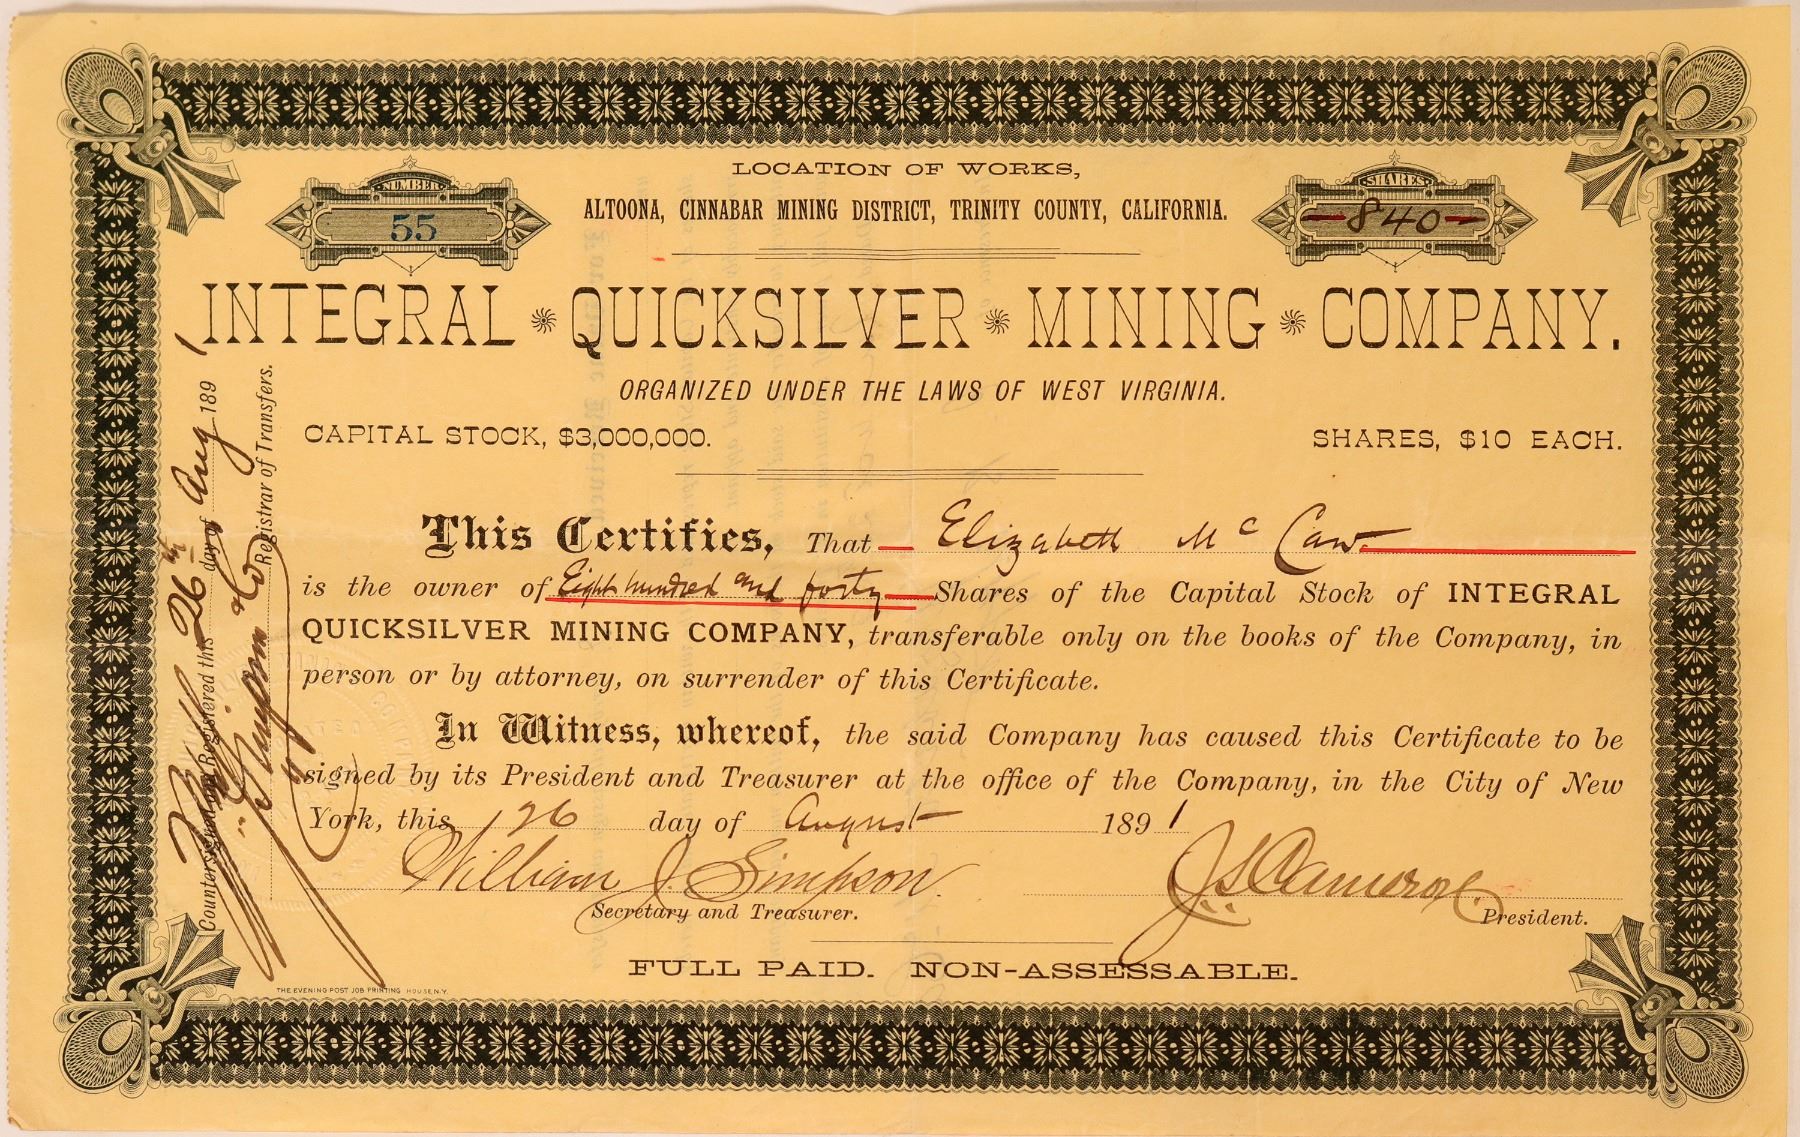 LOCATION OF WORKS,
ALTOONA, CINNABAR MINING DISTRICT, TRINITY COUNTY, CALIFORNIA.
NUMBER
55
SHARES
840
INTEGRAL QUICKSILVER MINING COMPANY.
ORGANIZED UNDER THE LAWS OF WEST VIRGINIA.
CAPITAL STOCK, $3,000,000.
SHARES, $10 EACH.
This Certifies, That Elizabeth McCaw
is the owner of Eight hundred and forty Shares of the Capital Stock of INTEGRAL
QUICKSILVER MINING COMPANY, transferable only on the books of the Company, in
person or by attorney, on surrender of this Certificate.
In Witness, whereof, the said Company has caused this Certificate to be
signed by its President and Treasurer at the office of the Company, in the City of New
York, this 26 day of August 1891
William J. Simpson
Secretary and Treasurer.
J. S. Cameron
President.
FULL PAID. NON-ASSESSABLE.
THE EVENING POST JOB PRINTING HOUSE N.Y.
Countersigned and Registered this 26th day of Aug 1891
Registrar of Transfers.